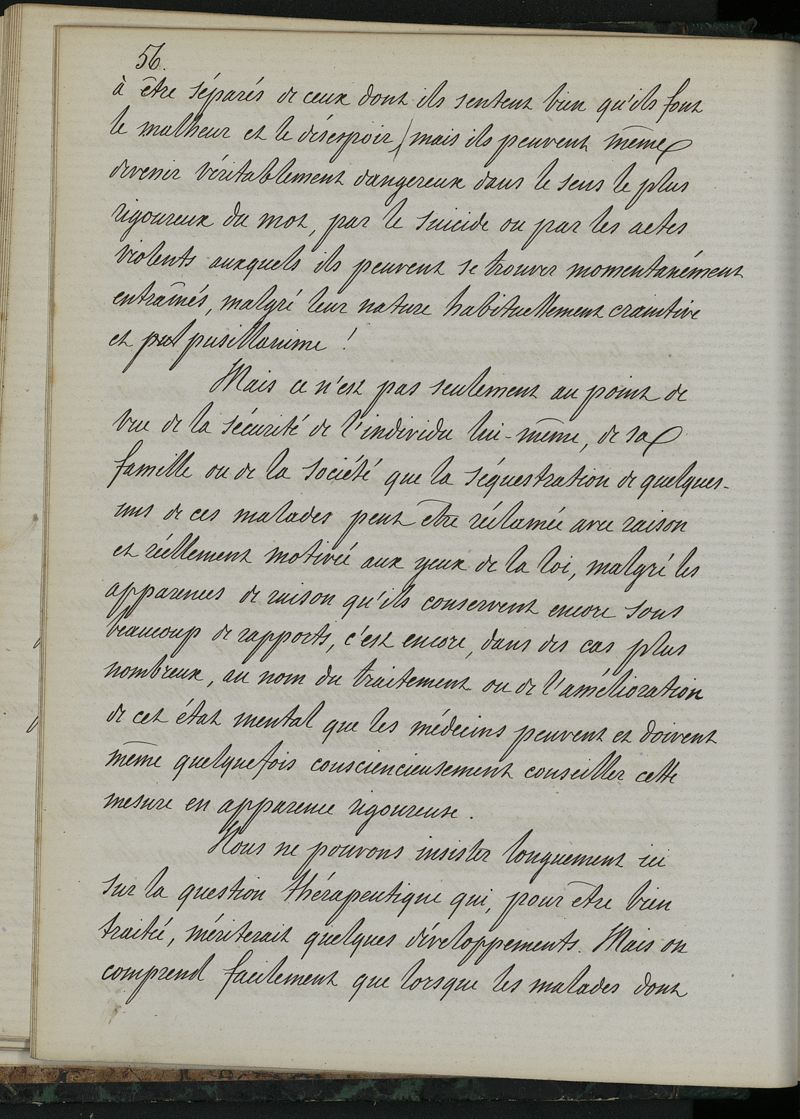 56.
à être séparés de ceux dont ils sentent bien qu'ils font
le malheur et le désespoir, mais ils peuvent même
devenir véritablement dangereux dans le sens le plus
rigoureux du mot, par le suicide ou par les actes
violents auxquels ils peuvent se trouver momentanément
entraînés, malgré leur nature habituellement craintive
et pusillanime !
Mais ce n'est pas seulement au point de
vue de la sécurité de l'individu lui-même, de sa
famille ou de la société que la séquestration de quelques-
uns de ces malades peut être réclamée avec raison
et réellement motivée aux yeux de la loi, malgré les
apparences de raison qu'ils conservent encore sous
beaucoup de rapports, c'est encore, dans des cas plus
nombreux, au nom du traitement ou de l'amélioration
de cet état mental que les médecins peuvent et doivent
même quelquefois consciencieusement conseiller cette
mesure en apparence rigoureuse.
Nous ne pouvons insister longuement ici
sur la question thérapeutique qui, pour être bien
traitée, mériterait quelques développements. Mais on
comprend facilement que lorsque les malades dont